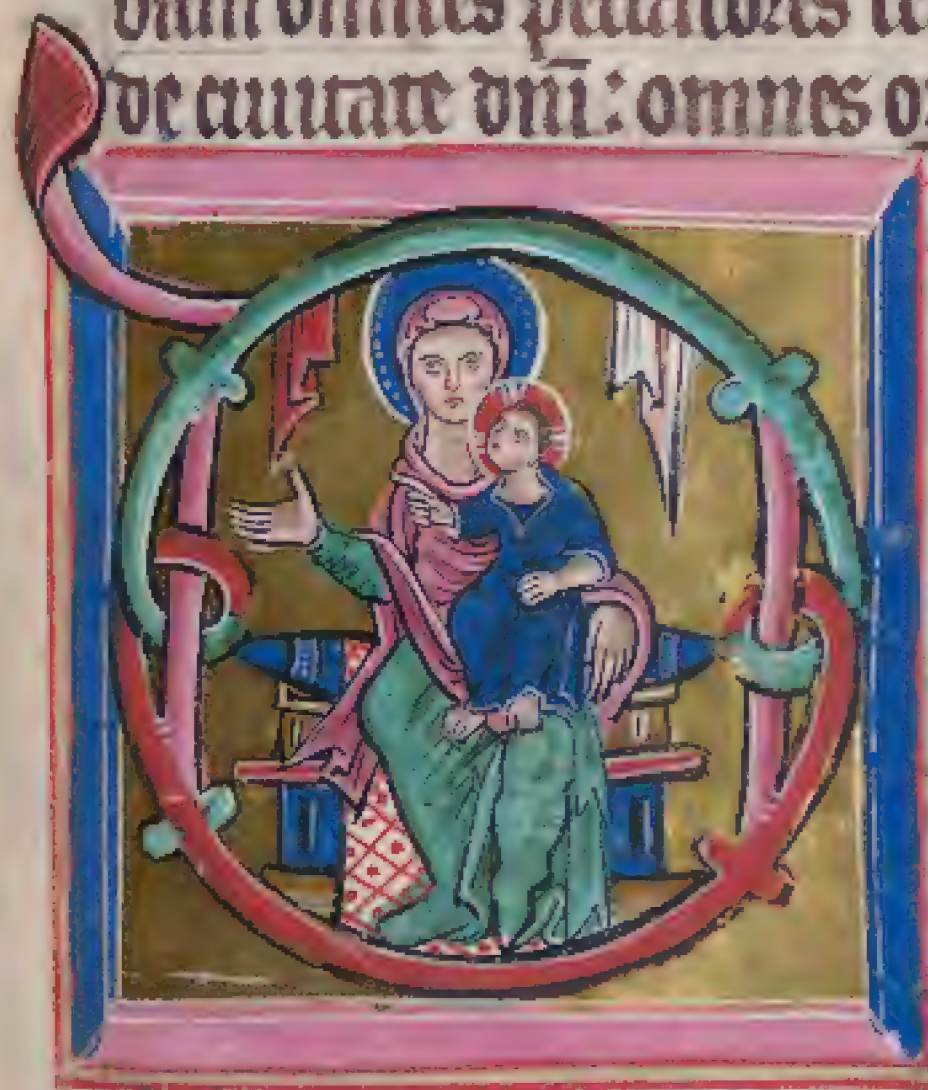 bam omnes peccatores te
de ciuitate dnı̄: omnes o
D